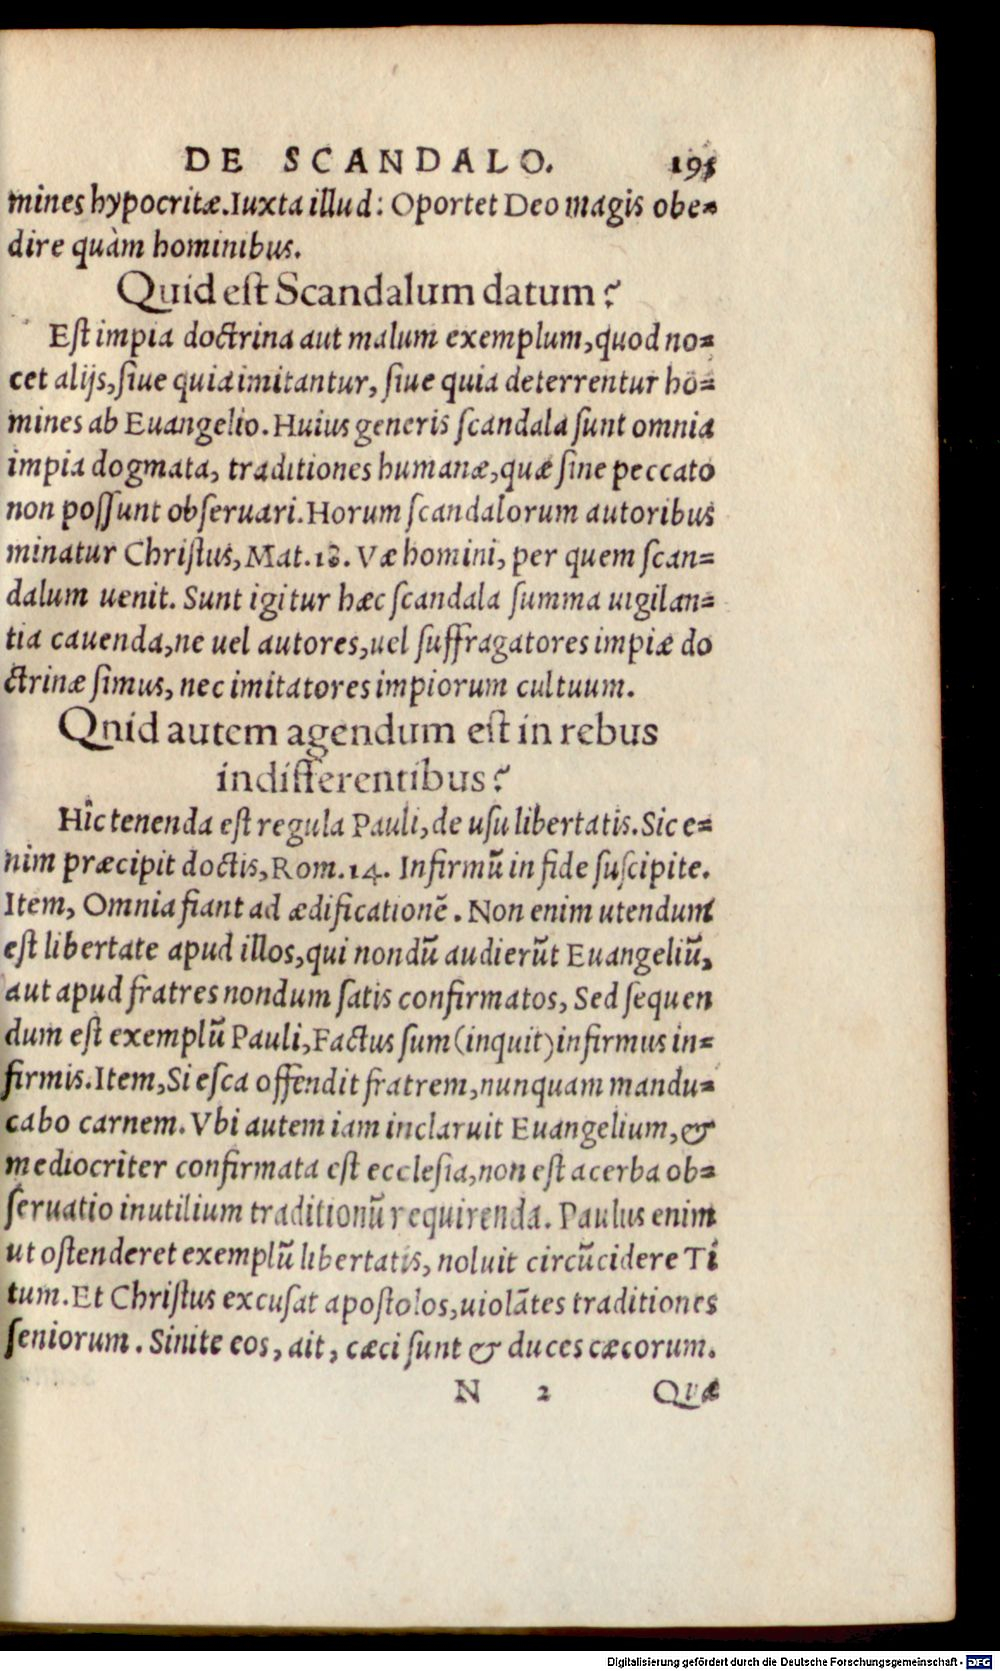 DE SCANDALO. 195
mines hypocritæ. Iuxta illud: Oportet Deo magis obe=
dire quàm hominibus.
Quid est Scandalum datum?
Est impia doctrina aut malum exemplum, quod no=
cet alijs, siue quia imitantur, siue quia deterrentur ho=
mines ab Euangelio. Huius generis scandala sunt omnia
impia dogmata, traditiones humanæ, quæ sine peccato
non possunt obseruari. Horum scandalorum autoribus
minatur Christus, Mat. 18. Væ homini, per quem scan=
dalum uenit. Sunt igitur hæc scandala summa uigilan=
tia cauenda, ne uel autores, uel suffragatores impiæ do
ctrinæ simus, nec imitatores impiorum cultuum.
Qnid autem agendum est in rebus
indifferentibus?
Hîc tenenda est regula Pauli, de usu libertatis. Sic e=
nim præcipit doctis, Rom. 14. Infirmũ in fide suscipite.
Item, Omnia fiant ad ædificationẽ. Non enim utendum
est libertate apud illos, qui nondũ audierũt Euangeliũ,
aut apud fratres nondum satis confirmatos, Sed sequen
dum est exemplũ Pauli, Factus sum (inquit) infirmus in=
firmis. Item, Si esca offendit fratrem, nunquam mandu=
cabo carnem. Vbi autem iam inclaruit Euangelium, &
mediocriter confirmata est ecclesia, non est acerba ob=
seruatio inutilium traditionũ requirenda. Paulus enim
ut ostenderet exemplũ libertatis, noluit circũcidere Ti
tum. Et Christus excusat apostolos, uiolãtes traditiones
seniorum. Sinite eos, ait, cæci sunt & duces cæcorum.
N 2 Quæ
Digitalisierung gefördert durch die Deutsche Forschungsgemeinschaft - DFG